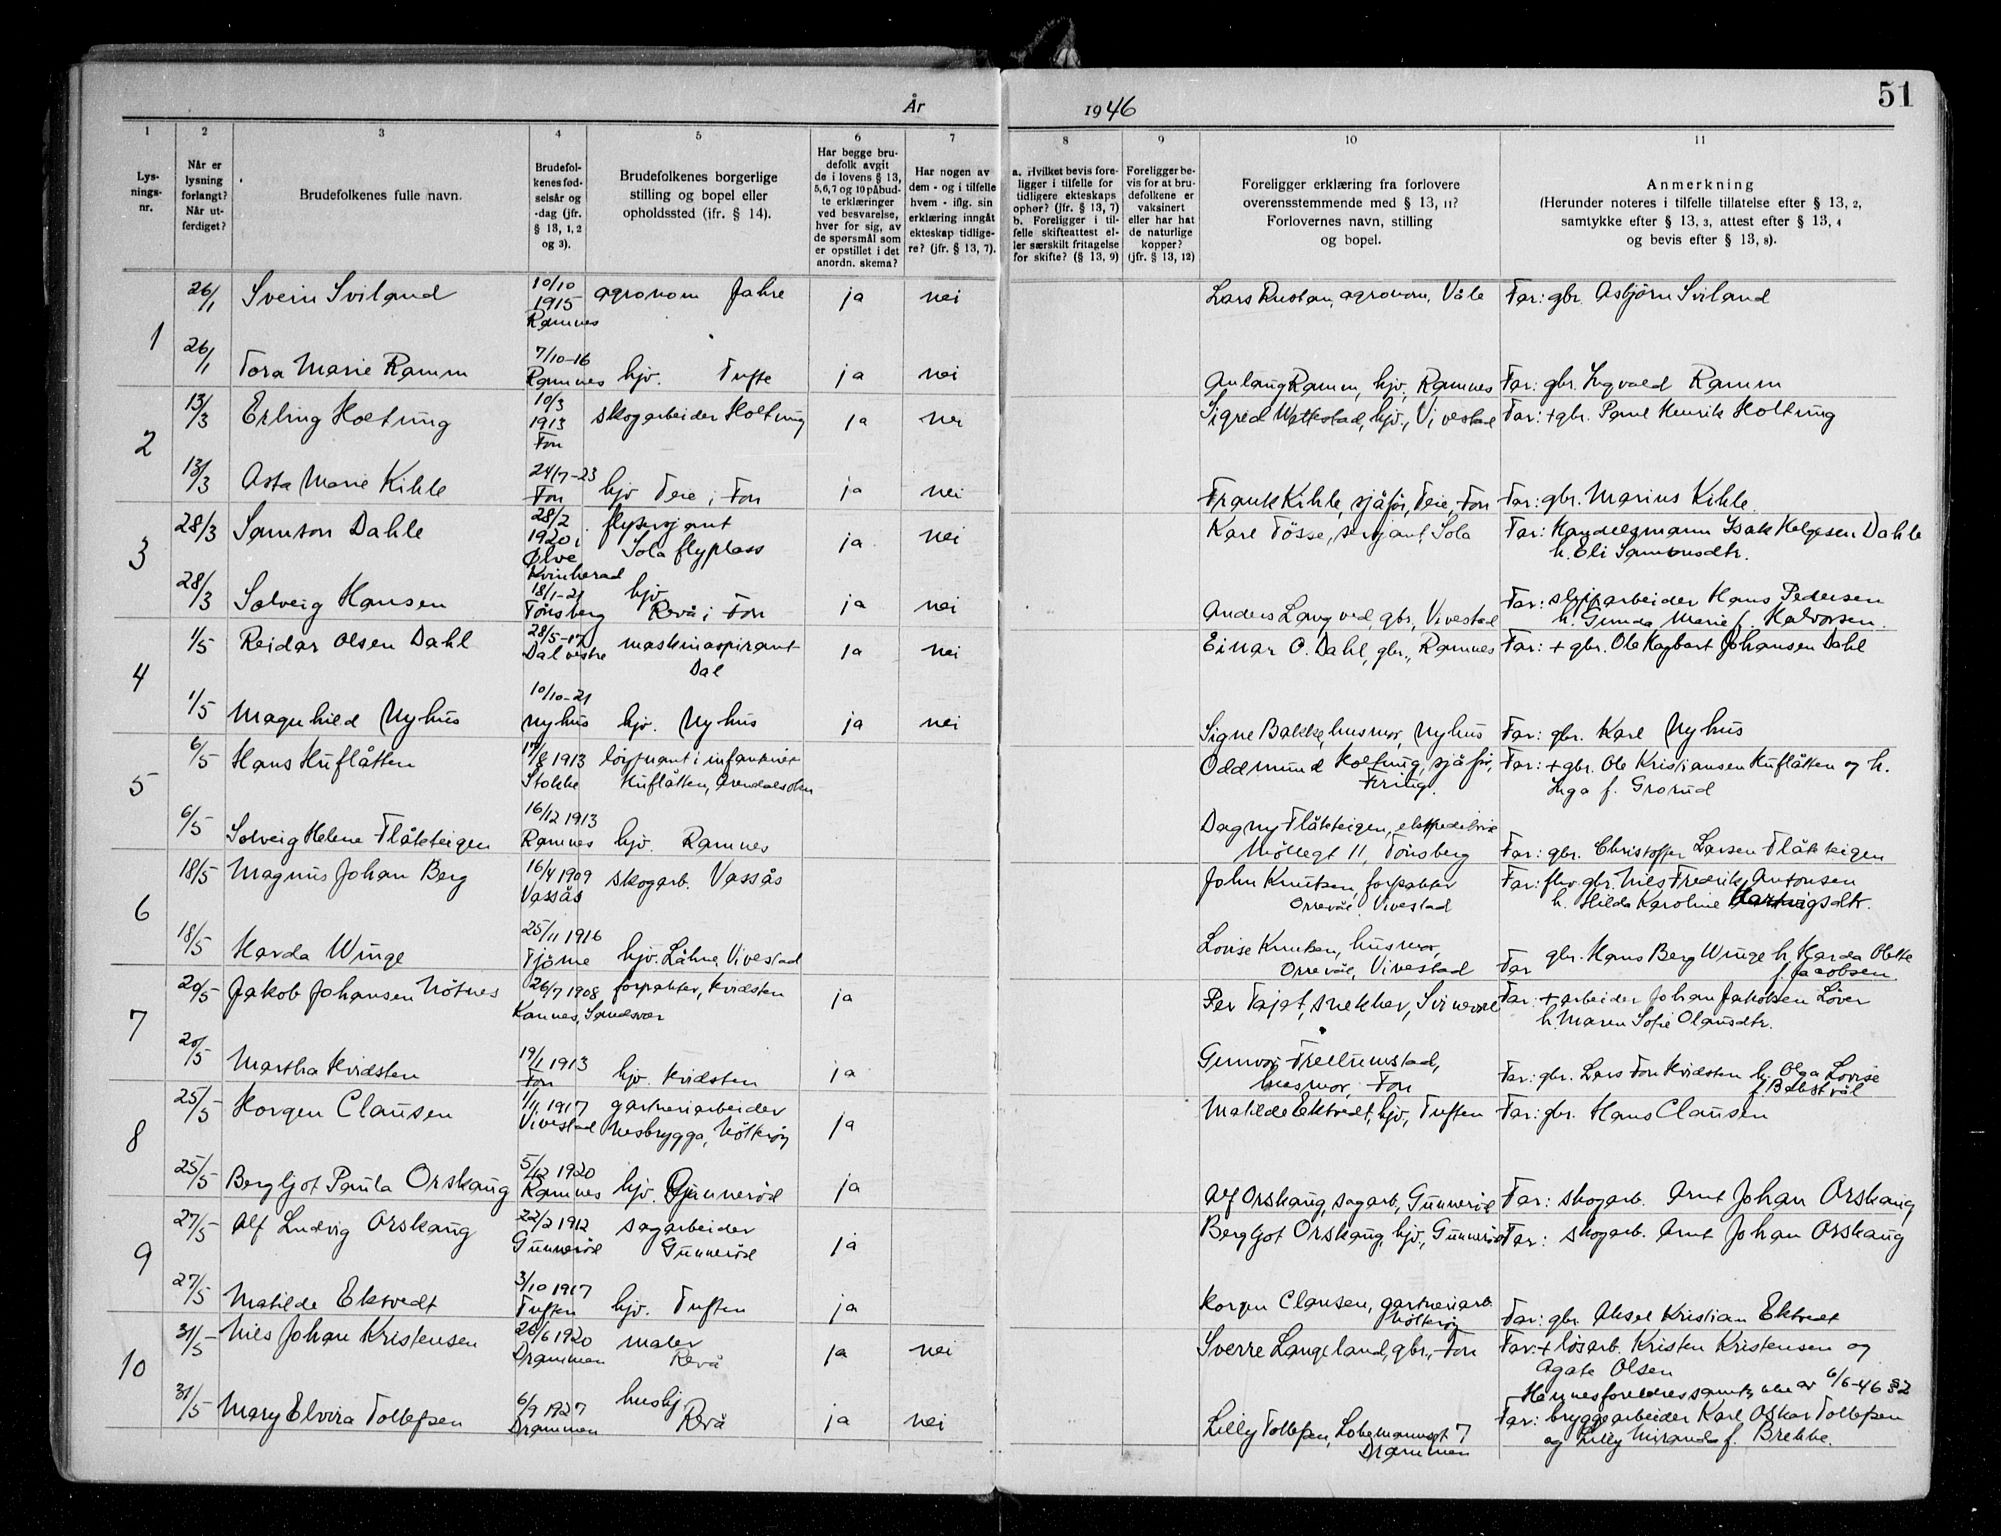 År
1946
51
1
2
3
4
5
6
7
8
9
10
11
Lys-
nings-
nr.
Når er
lysning
forlangt?
Når ut-
ferdiget?
Brudefolkenes fulle navn.
Brudefol-
kenes fød-
selsår og
-dag (jfr.
§ 13, 1, 2
og 3).
Brudefolkenes borgerlige
stilling og bopel eller
opholdssted (ifr. § 14).
Har begge bru-
defolk avgit
de i lovens § 13,
5,6,7 og 10 påbud-
te erklæringer
ved besvarelse,
hver for sig, av
de spørsmål som
er opstillet i det
anordn. skema?
Har nogen av
dem - og i tilfelle
hvem - iflg. sin
erklæring inngåt
ekteskap tidlige-
re? (jfr. § 13, 7).
a. Hvilket bevis fore-
ligger i tilfelle for
tidligere ekteskaps
ophør? (jfr. § 13, 7)
b. Foreligger i til-
felle skifteattest el-
ler særskilt fritagelse
for skifte? (§ 13, 9)
Foreligger be-
vis for at bru-
defolkene er
vaksinert
eller har hat
de naturlige
kopper?
(jf. § 13, 12)
Foreligger erklæring fra forlovere
overensstemmende med § 13, 11?
Forlovernes navn, stilling
og bopel.
Anmerkning
(Herunder noteres i tilfelle tillatelse efter § 13, 2,
samtykke efter § 13, 3, attest efter § 13, 4
og bevis efter § 13, 8).
1
26/1 Svein Sviland 10/10 1915 Ramnes agronom Jahre ja nei Lars Rustan, agronom, Våle Far: gbr. Asbjørn Sviland
26/1 Tora Marie Ramm 7/10-16 Ramnes hjv. Tufte ja nei Anlaug Ramm, hjv., Ramnes Far: gbr. Ingvald Ramm
2
13/3 Erling Holtung 10/3 1913 Fon skogarbeider Holtung ja nei Sigred Wettestad, hjv., Vivestad Far: + gbr. Paul Henrik Holtung
13/3 Asta Marie Kihle 24/7-23 Fon hjv Teie i Fon ja nei Frank Kihle, sjåfør, Teie, Fon Far: gbr. Marius Kihle.
3
28/3 Samson Dahle 28/2 1920 i Ølve Kvinherad flysersjant Sola flyplass ja nei Karl Tösse, serjant, Sola Far: Handelsmann Isak Helgesen Dahle
h. Eli Samsonsdtr.
28/3 Solveig Hansen 18/1-21 Tönsberg hjv Revå i Fon ja nei Anders Langved, gbr., Vivestad Far: sliparbeider Hans Pedersen
h. Gunda Marie f. Halvorsen.
4
1/5 Reidar Olsen Dahl 28/5-17 Dal vestre maskinaspirant Dal ja nei Einar O. Dahl, gbr., Ramnes Far: + gbr. Ole Hagbart Johansen Dahl
1/5 Magnhild Nyhus 10/10-21 Nyhus hjv. Nyhus ja nei Signe Bakke, husmor, Nyhus Far: gbr. Karl Nyhus
5
6/5 Hans Huflåtten 17/8 1913 Stokke löytnant i infanteriet Huflåtten, Arendalsolsen Oddmund Holtung, sjåfør, Firing. Far: + gbr. Ole Kristiansen Huflåtten og h.
Inga f. Grorud
6/5 Solveig Helene Flåtteigen 16/12 1913 Ramnes hjv. Ramnes Dagny Flåtteigen, ekspeditrise
Möllegt 11, Tönsberg Far: gbr. Christoffer Larsen Flåtteigen
6
18/5 Magnus Johan Berg 16/4 1909 Vassås skogarb. Vassås John Knutsen, forpakter
Orrevål Vivestad Far: fhv. gbr. Nils Fredrik Antonsen
h. Hilda Karoline Hartvigsdtr.
18/5 Harda Winge 25/11 1916 Tjöme hjv. Låhne, Vivestad Lovise Knutsen, husmor,
Orrevål, Vivestad Far gbr. Hans Berg Winge h. Harda Olette
f. Jacobsen
7
20/5 Jakob Johansen Nötnes 26/7 1908 Kannes, Sandsvær forpakter, Kvidsten ja Per Tajet, snekker, Svinevoll Far: + arbeider Johan Jakobsen Löver
h. Maren Sofie Olausdtr.
20/5 Martha Kvidsten 19/1 1913 Fon hjv. Kvidsten ja Gunvor Trellumstad,
husmor, Fon Far: gbr. Lars Fon Kvidsten h. Olga Lovise
f. Bakstvål
8
25/5 Horgen Clausen 1/11 1917 Vivestad gartneriarbeider Nesbrygga, Nötteröy ja Matilde Ektvedt, hjv, Tuften Far: gbr. Hans Clausen
25/5 Bergljot Paula Orskaug 5/12 1920 Ramnes hjv. Gunneröd ja Alf Orskaug, sagarb, Gunneröd Far: skogarb. Arnt Johan Orskaug
9
27/5 Alf Ludvig Orskaug 22/2 1912 Gunneröd sagarbeider Gunneröd ja Bergljot Orskaug, hjv., Gunneröd Far: skogarb. Arnt Johan Orskaug
27/5 Matilde Ektvedt 3/10 1917 Tuften hjv. Tuften ja Horgen Clausen, gartneriarb.
Nötteröy Far: gbr Aksel Kristian Ektvedt
10
31/5 Nils Johan Kristensen 26/6 1920 Drammen maler Revå ja nei Sverre Langeland, gbr., Fon Far: + løsarb. Kristen Kristensen og
Agate Olsen
Hennes foreldres samtykke av 6/6-46 § 2
31/5 Mary Elvira Tollefsen 6/9 1927 Drammen hushj Revå ja nei Lilly Tollefsen, Lobemannsgt 7
Drammen Far: bryggearbeider Karl Oskar Tollefsen
og Lilly Miranda f. Brekke.